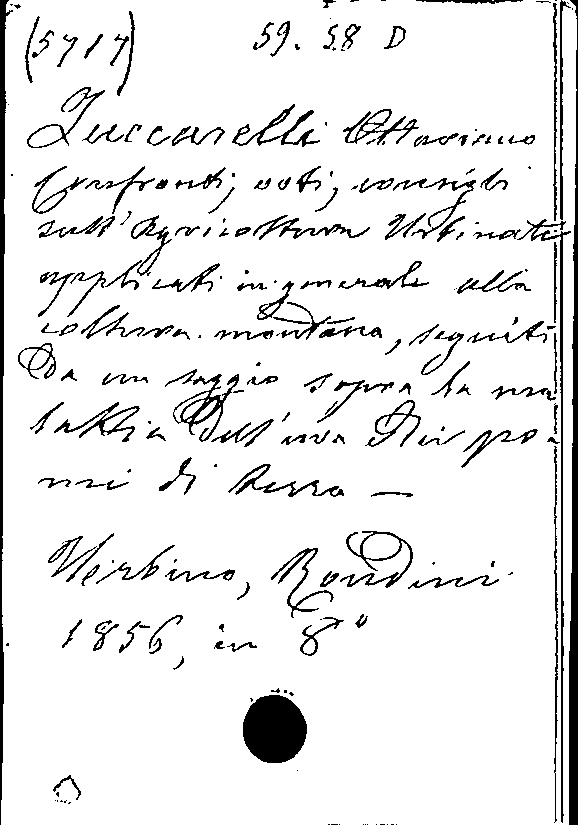 (5717) 59. 58 D
Zuccarelli Ottaviano
Confronti, voti, consigli
sull'Agricoltura Urbinate
applicati in generale alla
coltura montana, seguiti
Da un saggio sopra la ma
lattia Dell'uva e dei po-
mi di terra —
Urbino, Rondini
1856, in 8°